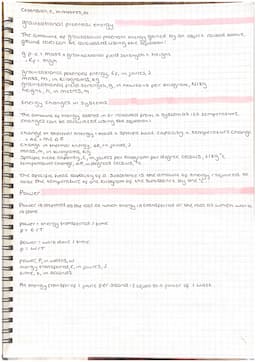 extension, e, in metres, m
gravitational potential energy
The amount of gravitational potential energy gained by an object raised above
ground level can be calculated using the equation:
g.p.e = mass x gravitational field strength x height
energy, Ep, in joules, J
mass, m, in kilograms, kg
gravitational field strength, g, in newtons per kilogram, N/kg
height, h, in metres, m
Energy Changes in Systems
The amount of energy stored in or released from a system as its temperature
changes can be calculated using the equation:
change in thermal energy = mass x specific heat capacity x temperature change
change in thermal energy, in joules, J
mass, m, in kilograms, kg
specific heat capacity, c, in joules per kilogram per degree Celsius,
temperature change, in degrees Celsius,
The specific heat capacity of a substance is the amount of energy required to
raise the temperature of one kilogram of the substance by one
Power
Power is defined as the rate at which energy is transferred or the rate at which work
is done
power = energy transferred / time
power = work done / time
power, P, in watts, W
energy transferred, E, in joules, J
time, t, in seconds
An energy transfer of 1 joule per second is equal to a power of 1 watt